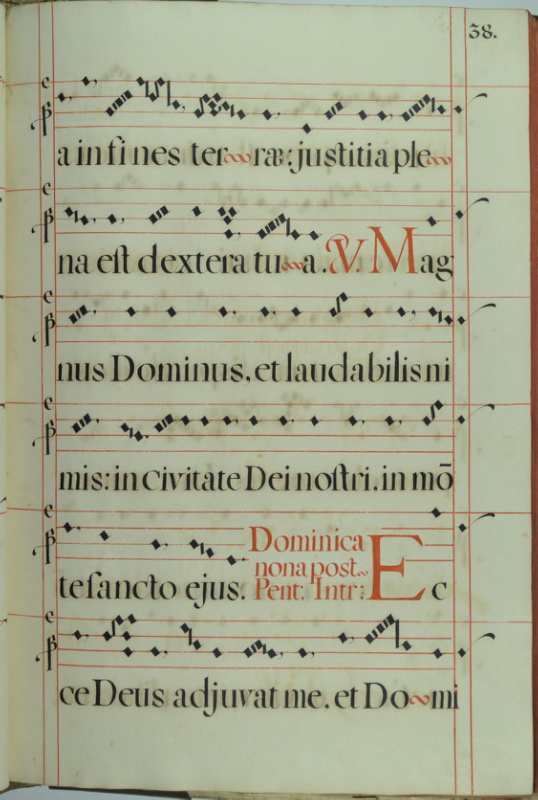 38.
a in fi nes ter ræ: justitia ple
na est dextera tu a. V. Mag
nus Dominus, et laudabilis ni
mis: in civitate Dei nostri, in mō
te sancto ejus. Dominica
nona post
Pent: Intr: Ec
ce Deus adjuvat me, et Do mi